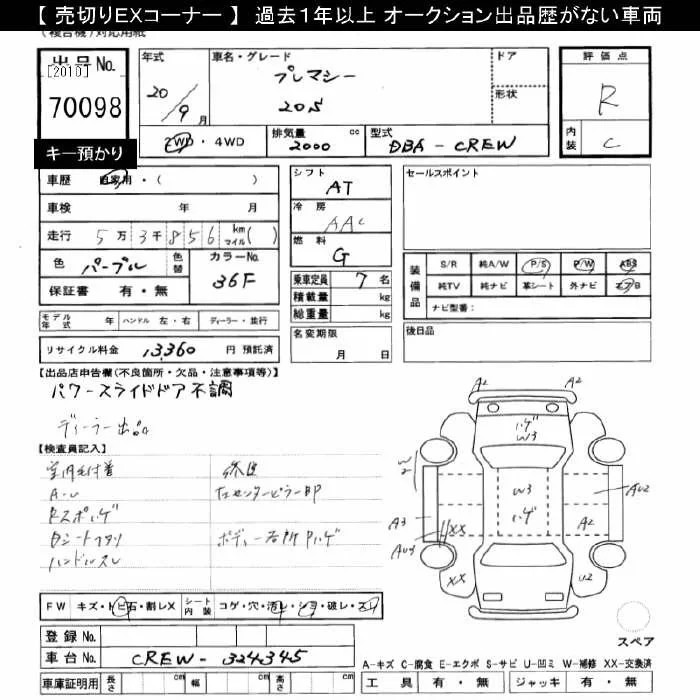 【 売切りEXコーナー 】 過去1年以上 オークション出品歴がない車両
(複合機)対応用紙
出品No. [2010]
70098
キー預かり
年式 20/9月
車名・グレード プレマシー 20S
ドア
形状
2WD・4WD
排気量 2000 cc
型式 DBA-CREW
評価点 R
内装 C
車歴 自家用・( )
車検 年 月
走行 5万3千856 km マイル( )
色 パープル 色替 カラーNo. 36F
保証書 有・無
モデル年式 年 ハンドル 左・右 ディーラー・並行
リサイクル料金 13360 円 預託済
シフト AT
冷房 AAC
燃料 G
乗車定員 7 名
積載量 kg
総重量 kg
名変期限 月 日
セールスポイント
装備品 S/R 純A/W P/S P/W ABS
純TV 純ナビ 革シート 外ナビ エアB
ナビ型番:
後日品
【出品店申告欄(不良箇所・欠品・注意事項等)】
パワースライドドア不調
ディーラー出品
【検査員記入】
A-U
ハンドルスレ
右センターピラー
FW キズ・トビ石・割レX シート内装 コゲ・穴・汚レ・シミ・破レ・スレ
登録No.
車台No. CREW-324345
車庫証明用 長さ cm 幅 cm 高さ cm
A2
A2
ハゲ
W3
W2
W3
ハゲ
AU2
A3
A2
AU3
XX
XX
U2
スペア
A-キズ C-腐食 E-エクボ S-サビ U-凹ミ W-補修 XX-交換済
工具 有・無 ジャッキ 有・無